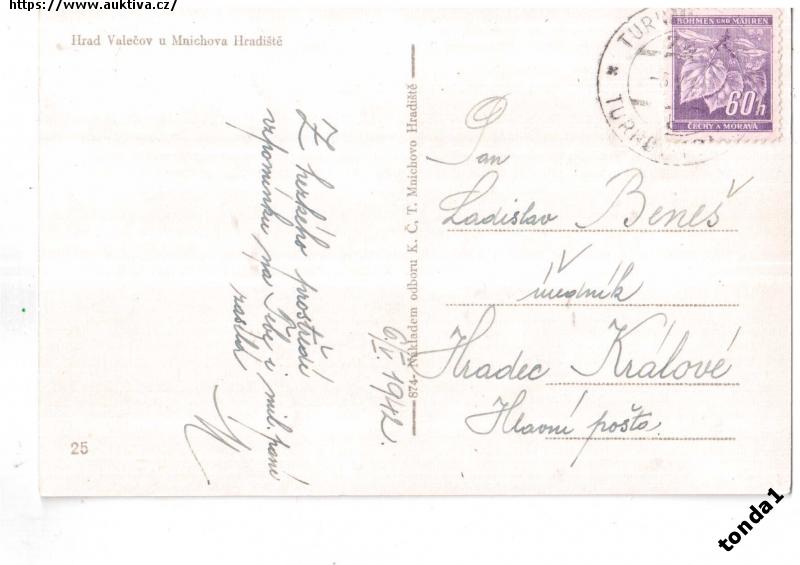 https://www.auktiva.cz/
Hrad Valečov u Mnichova Hradiště
Z hezkého prostředí
vzpomínku na Tebe i mil. paní
zasílá
6/V 1942.
25
874 - Nákladem odboru K. Č. T. Mnichovo Hradiště
BÖHMEN UND MÄHREN
60h
ČECHY A MORAVA
TURNOV
Pan
Ladislav Beneš
úředník
Hradec Králové
Hlavní pošta.
tonda1